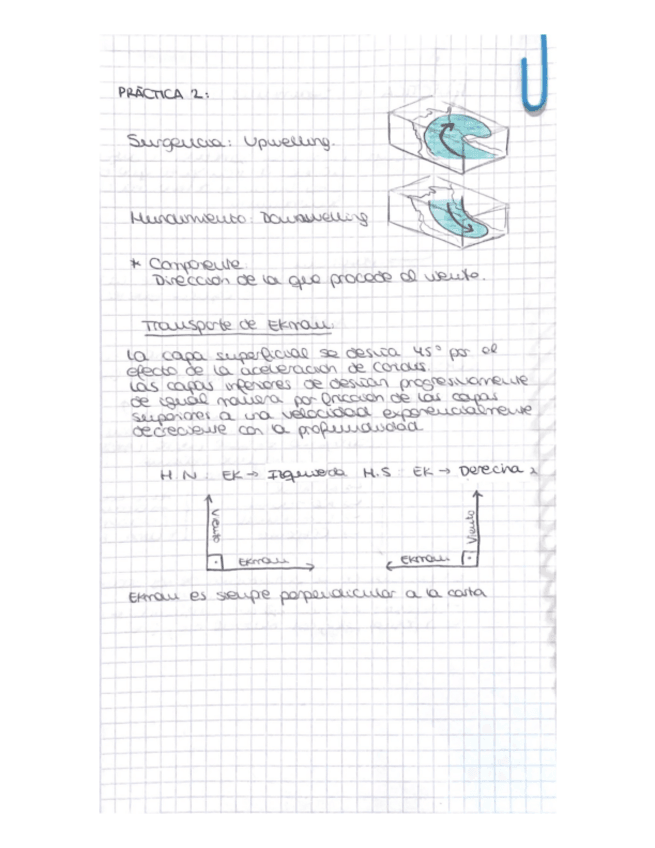 PRÁCTICA 2:
Surgencia: Upwelling.
Hundimiento: Downwelling
* Componente
Dirección de la que procede el viento.
Transporte de Ekman.
La capa superficial se desvía 45° por el
efecto de la aceleración de Coriolis.
Las capas inferiores de desvían progresivamente
de igual manera por fricción de las capas
superiores a una velocidad exponencialmente
decreciente con la profundidad
H.N: EK → Izquierda H.S: EK → Derecha
Viento
Ekman
Viento
Ekman
Ekman es siempe perpendicular a la costa